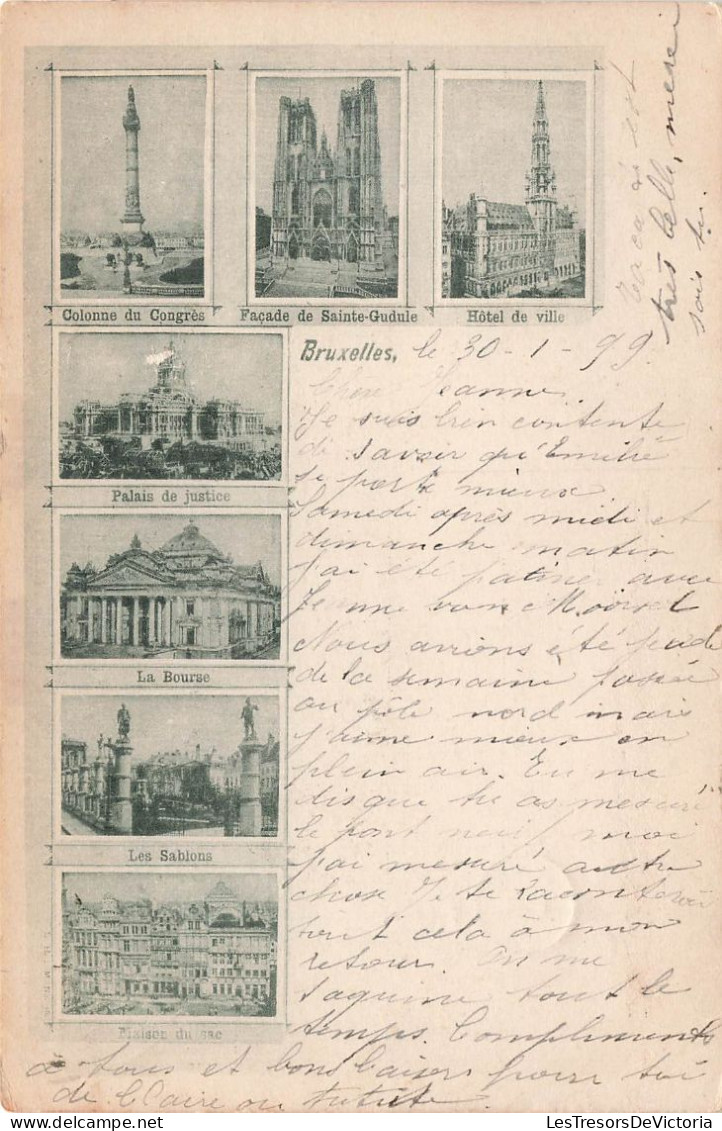 Colonne du Congrès
Façade de Sainte-Gudule
Hôtel de ville
Palais de justice
La Bourse
Les Sablons
Maison du sac
Bruxelles, le 30-1-99.
Chère Jeanne.
Je suis bien contente
de savoir qu'Emilie
se porte mieux.
Samedi après midi et
dimanche matin
j'ai été patiner avec
Jenne van
Nous avions été
de la semaine passée
au pôle nord mais
j'aime mieux en
plein air. Tu me
dis que tu as mesuré
le pont neuf moi
j'ai mesuré autre
chose Je te raconterai
tout cela à mon
retour. On me
taquine tout le
temps. Compliments
à tous et bons baisers pour toi
de Claire ou Tutute
très belle, merci
sais tu.
LesTresorsDeVictoria
delcampe.net
LesTresorsDeVictoria